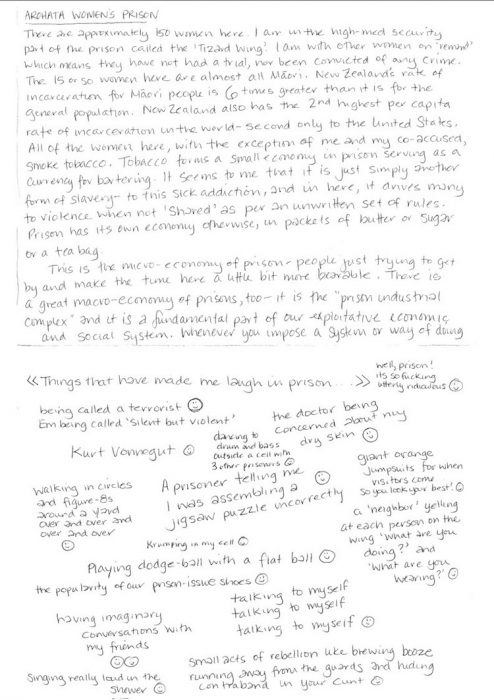 AROHATA WOMEN'S PRISON
There are approximately 150 women here. I am in the high-med security
part of the prison called the 'Tizard Wing'. I am with other women on 'remand'
which means they have not had a trial, nor been convicted of any crime.
The 15 or so women here are almost all Māori. New Zealand's rate of
incarceration for Māori people is 6 times greater than it is for the
general population. New Zealand also has the 2nd highest per capita
rate of incarceration in the world - second only to the United States.
All of the women here, with the exception of me and my co-accused,
smoke tobacco. Tobacco forms a small economy in prison serving as a
currency for bartering. It seems to me that it is just simply another
form of slavery - to this sick addiction, and in here, it drives many
to violence when not 'shared' as per an unwritten set of rules.
Prison has its own economy otherwise, in packets of butter or sugar
or a tea bag.
This is the micro-economy of prison - people just trying to get
by and make the time here a little bit more bearable. There is
a great macro-economy of prisons, too - it is the "prison industrial
complex" and it is a fundamental part of our exploitative economic
and social system. Whenever you impose a system or way of doing
<<Things that have made me laugh in prison...>>
well, prison!
its so fucking
utterly ridiculous
being called a terrorist
Em being called 'Silent but violent'
the doctor being
concerned about my
dry skin
Kurt Vonnegut
dancing to
drum and bass
outside a cell with
3 other prisoners
giant orange
jumpsuits for when
visitors come
so you look your best!
walking in circles
and figure-8s
around a yard
over and over and
over and over
A prisoner telling me
I was assembling a
jigsaw puzzle incorrectly
a 'neighbor' yelling
at each person on the
wing 'what are you
doing?' and
'what are you
wearing?'
Krumping in my cell
Playing dodge-ball with a flat ball
the popularity of our prison-issue shoes
talking to myself
talking to myself
talking to myself
having imaginary
conversations with
my friends
singing really loud in the
shower
small acts of rebellion like brewing booze
running away from the guards and hiding
contraband in your cunt